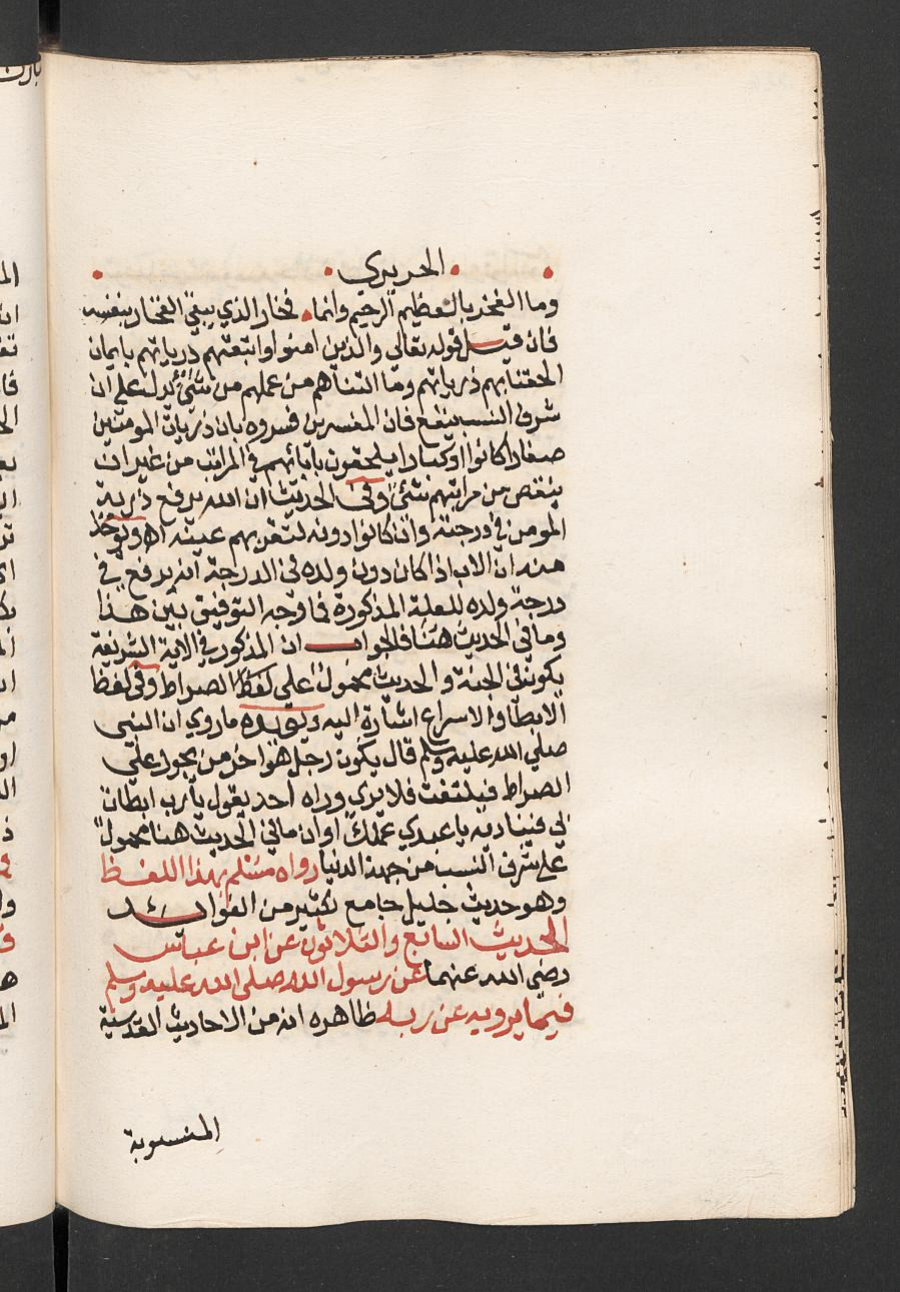 الحريري
وما الفخر بالعظيم الرميم وانما فخار الذي يبغي الفخار بنفسه
فان قيل قوله تعالي والذين امنوا واتبعتهم ذرياتهم بايمان
الحقنا بهم ذرياتهم وما التناهم من عملهم من شئ يدل علي ان
شرف النسب ينفع فان المفسرين فسروه بان ذريات المومنين
صغارا كانوا او كبارا يلحقون بابائهم في المراتب من غير ان
ينقص من مراتبهم شئ وفي الحديث ان الله يرفع ذرية
المومن في درجته وان كانوا دونه لتقر بهم عينه اه ويوخذ
منه ان الاب اذا كان دون ولده في الدرجة انه يرفع في
درجة ولده للعلة المذكورة فما وجه التوفيق بين هذا
وما في الحديث هنا فالجواب ان المذكور في الاية الشريفة
يكون في الجنة والحديث محمول علي لفظ الصراط وفي لفظ
الابطا والاسراع اشارة اليه ويويده ما روي ان النبي
صلي الله عليه وسلم قال يكون رجل هو اخر من يجوز علي
الصراط فيلتفت فلا يري وراه احد يقول يارب ابطات
بي فيناديه يا عبدي عملك او ان ما في الحديث هنا محمول
علي شرف النسب من جهة الدنيا رواه مسلم بهذا اللفظ
وهو حديث جليل جامع لكثير من الفوائد
الحديث السابع والثلاثون عن ابن عباس
رضي الله عنهما عن رسول الله صلي الله عليه وسلم
فيما يرويه عن ربه ظاهره انه من الاحاديث القدسية
المنسوبة